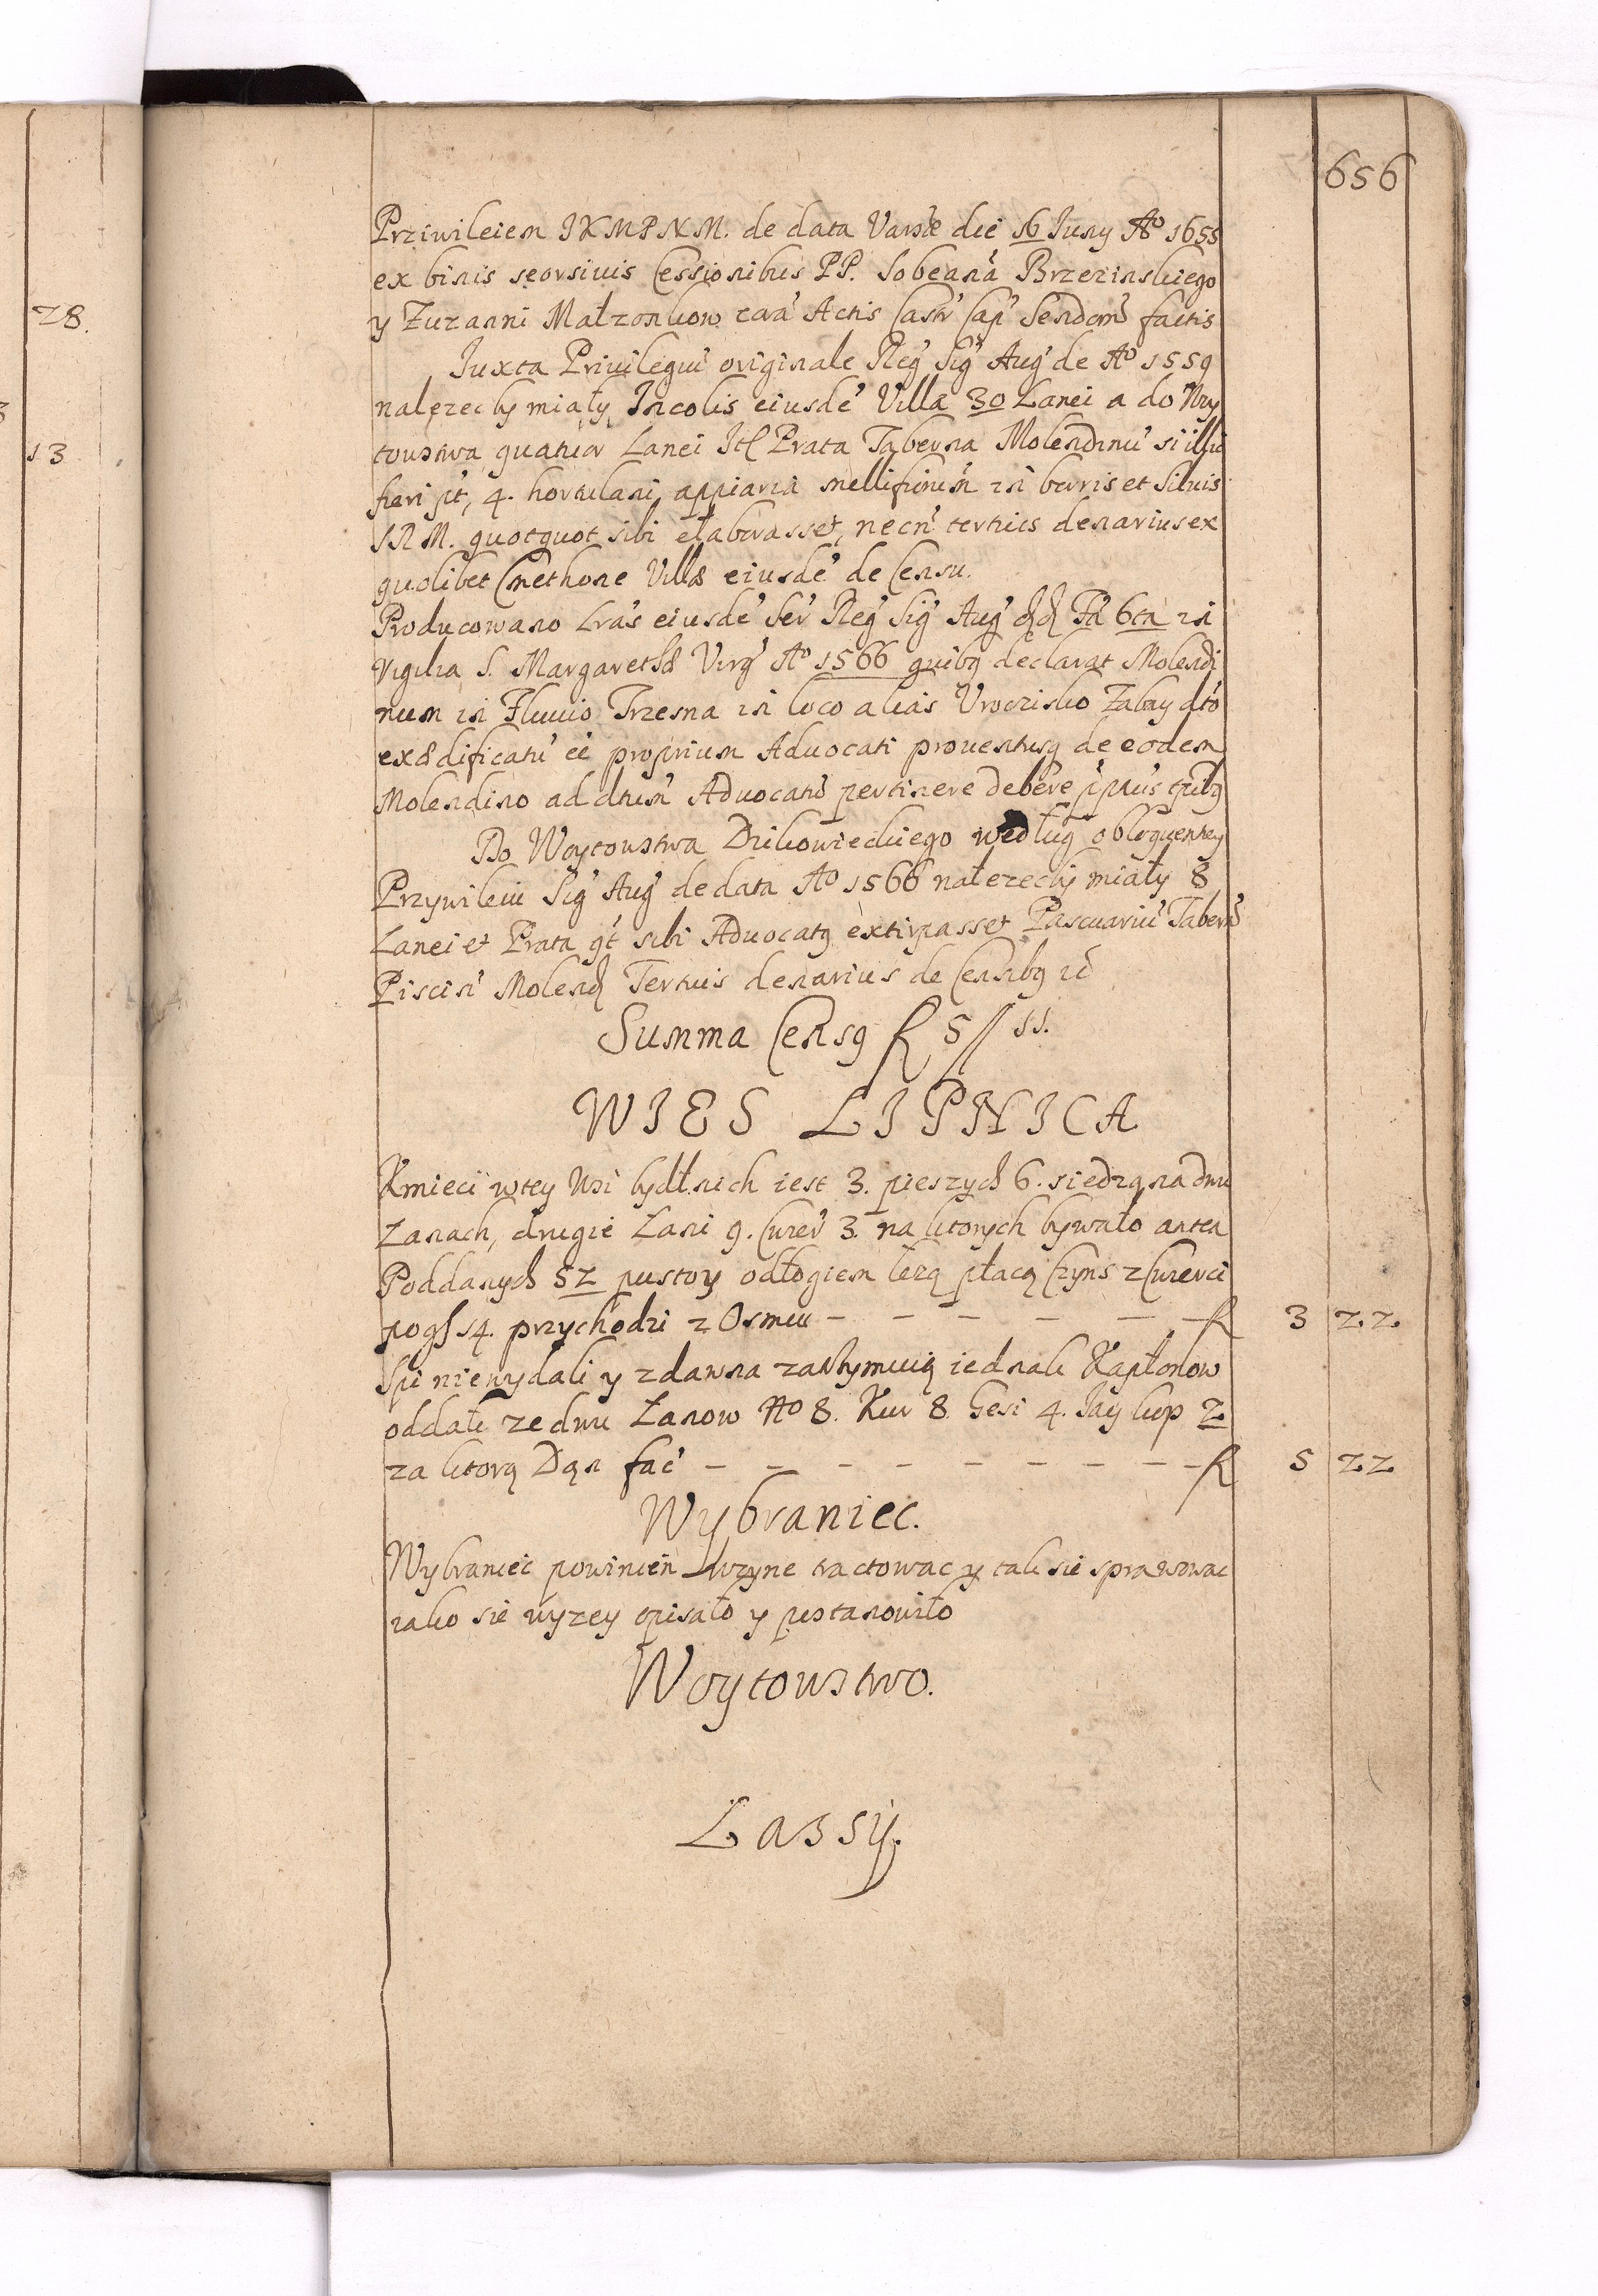 28.
13
656
Prziwileiem JKMPNM. de data Varsae die 16 Juny Ao 1655
ex binis seorsiuis Cessionibus PP. Sobeana Brzezinskiego
y Zuzanni Małzonkow cora Actis Castr Cap Sendom factis
Juxta Priuilegiu originale Reg Sig Aug de Ao 1559
nalezecby miały Incolis eiusde Villa 30 Lanei a do Woy
toustwa quatuor Lanei Itl Prata Taberna Molendinu si illic
fieri pt, 4. hortulani appiaria mellificium in borris et Siluis
SRM. quotquot sibi elaborasset, necn tertius denarius ex
quolibet Cmethone Villæ eiusde de Censu.
Producowano Lras eiusde Ser Reg Sig Aug dd Fa 6ta in
vigilia S. Margarethæ Virg Ao 1566 quibq declarat Molendi
num in Fluuio Trzesna in loco alias Uroczisko Zabay dto
exædificatu ee proprium Aduocati prouentusq de eodem
Molendino ad dtum Aduocatu pertinere debere ppetuis tpribq
Do Woytoustwa Dzikowieckiego według obloquentey
Przywileiu Sig Aug de data Ao 1566 nalezecby miały 8
Lanei et Prata qt sibi Aduocatq extirpasset Pascuariu Tabern
Piscin Molend Tertius denarius de Censibq
Summa Censq fl 5 // 11.
WIES LIPNICA
Kmieci wtey Wsi bydł.nich iest 3. pieszych 6. siedzą na dwu
Łanach, drugie Łani 9. Cwier 3. na ktorych bywało antea
Poddanych 52 pustoy odłogiem lezą płacą Czyns z Cwierci
pogs 14. przychodzi z Osmiu - - - - - - fl 3 22
Spi niewydali y zdawna zatrymuią iednak Kapłonow
oddali ze dwu Łanow No 8. Kur 8. Gesi 4. Jay kop 2
za ktorą Dąn fac - - - - - - - - - fl 5 22
Wybraniec.
Wybraniec powinien Zwzyne tractowac y tak sie sprawowac
iako sie wyzey opisało y postanowiło
Woytoustwo.
Lassy.